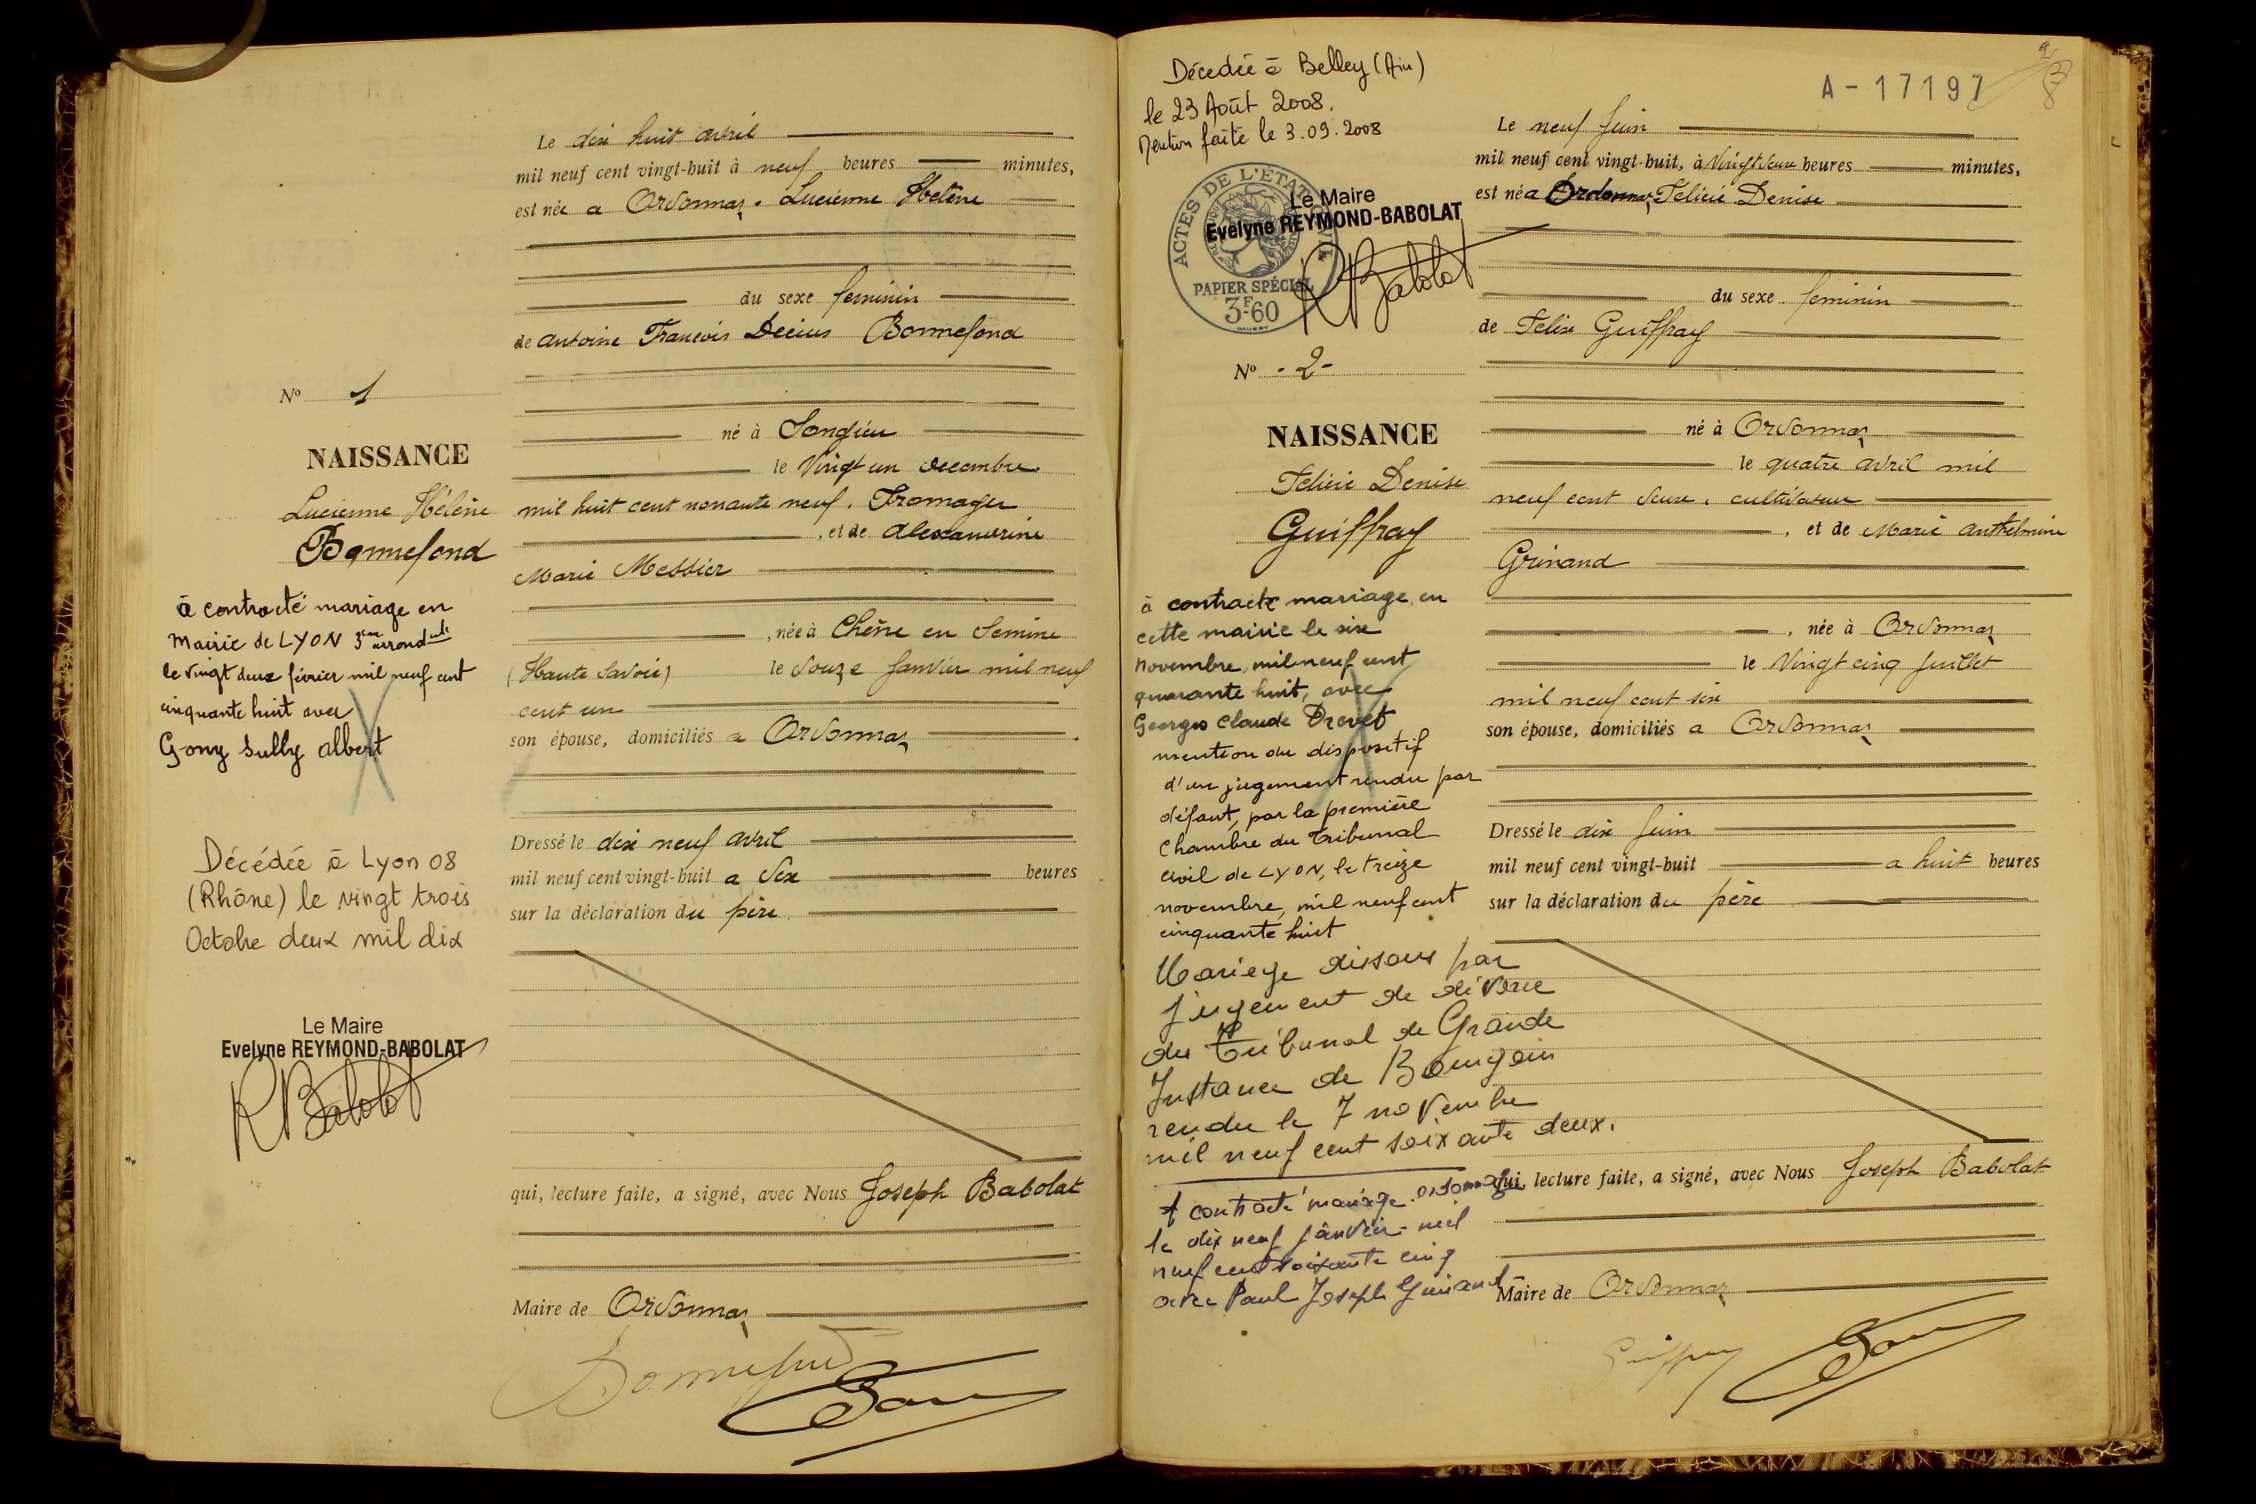 Le dix huit avril
mil neuf cent vingt-huit à neuf heures minutes,
est née à Ordonnaz. Lucienne Hélène
du sexe féminin
de Antoine François Décius Bonnefond
No 1
né à Songieu
NAISSANCE
le Vingt un décembre
Lucienne Hélène
mil huit cent nonante neuf. Fromager
, et de Alexandrine
Bonnefond
Marie Messier
à contracté mariage en
mairie de LYON 3eme arrondt
le vingt deux février mil neuf cent
cinquante huit avec
Gony Sully Albert
, née à Chêne en Semine
(Haute Savoie) le douze Janvier mil neuf
cent un
son épouse, domiciliés à Ordonnaz
Dressé le dix neuf avril
mil neuf cent vingt-huit à dix heures
sur la déclaration du père
Décédée à Lyon 08
(Rhône) le vingt trois
Octobre deux mil dix
Le Maire
Evelyne REYMOND-BABOLAT
RBabolat
qui, lecture faite, a signé, avec Nous Joseph Babolat
Maire de Ordonnaz
Bonnefond
Décédée à Belley (Ain)
le 23 Août 2008.
Mention faite le 3.09.2008
A-17197
Le neuf Juin
mil neuf cent vingt-huit, à Vingt deux heures minutes,
est née à Ordonnaz Félicie Denise
ACTES DE L'ETAT CIVIL
PAPIER SPÉCIAL
3F60
Le Maire
Evelyne REYMOND-BABOLAT
RBabolat
du sexe féminin
de Félix Guiffray
No - 2 -
né à Ordonnaz
NAISSANCE
le quatre avril mil
Félicie Denise
neuf cent deux, cultivateur
Guiffray
, et de Marie Anthelmine
Grinand
à contracté mariage en
cette mairie le six
novembre mil neuf cent
quarante huit, avec
Georges Claude Drevet
mention du dispositif
d'un jugement rendu par
défaut, par la première
Chambre du Tribunal
civil de LYON, le treize
novembre, mil neuf cent
cinquante huit
, née à Ordonnaz
le Vingt cinq Juillet
mil neuf cent six
son épouse, domiciliés à Ordonnaz
Dressé le dix Juin
mil neuf cent vingt-huit à huit heures
sur la déclaration du père
Mariage dissous par
jugement de divorce
du Tribunal de Grande
Instance de Bourgoin
rendu le 7 novembre
mil neuf cent soixante deux.
A contracté mariage Ordonnaz
le dix neuf janvier mil
neuf cent soixante cinq
avec Paul Joseph Guinand
qui, lecture faite, a signé, avec Nous Joseph Babolat
Maire de Ordonnaz
Guiffray